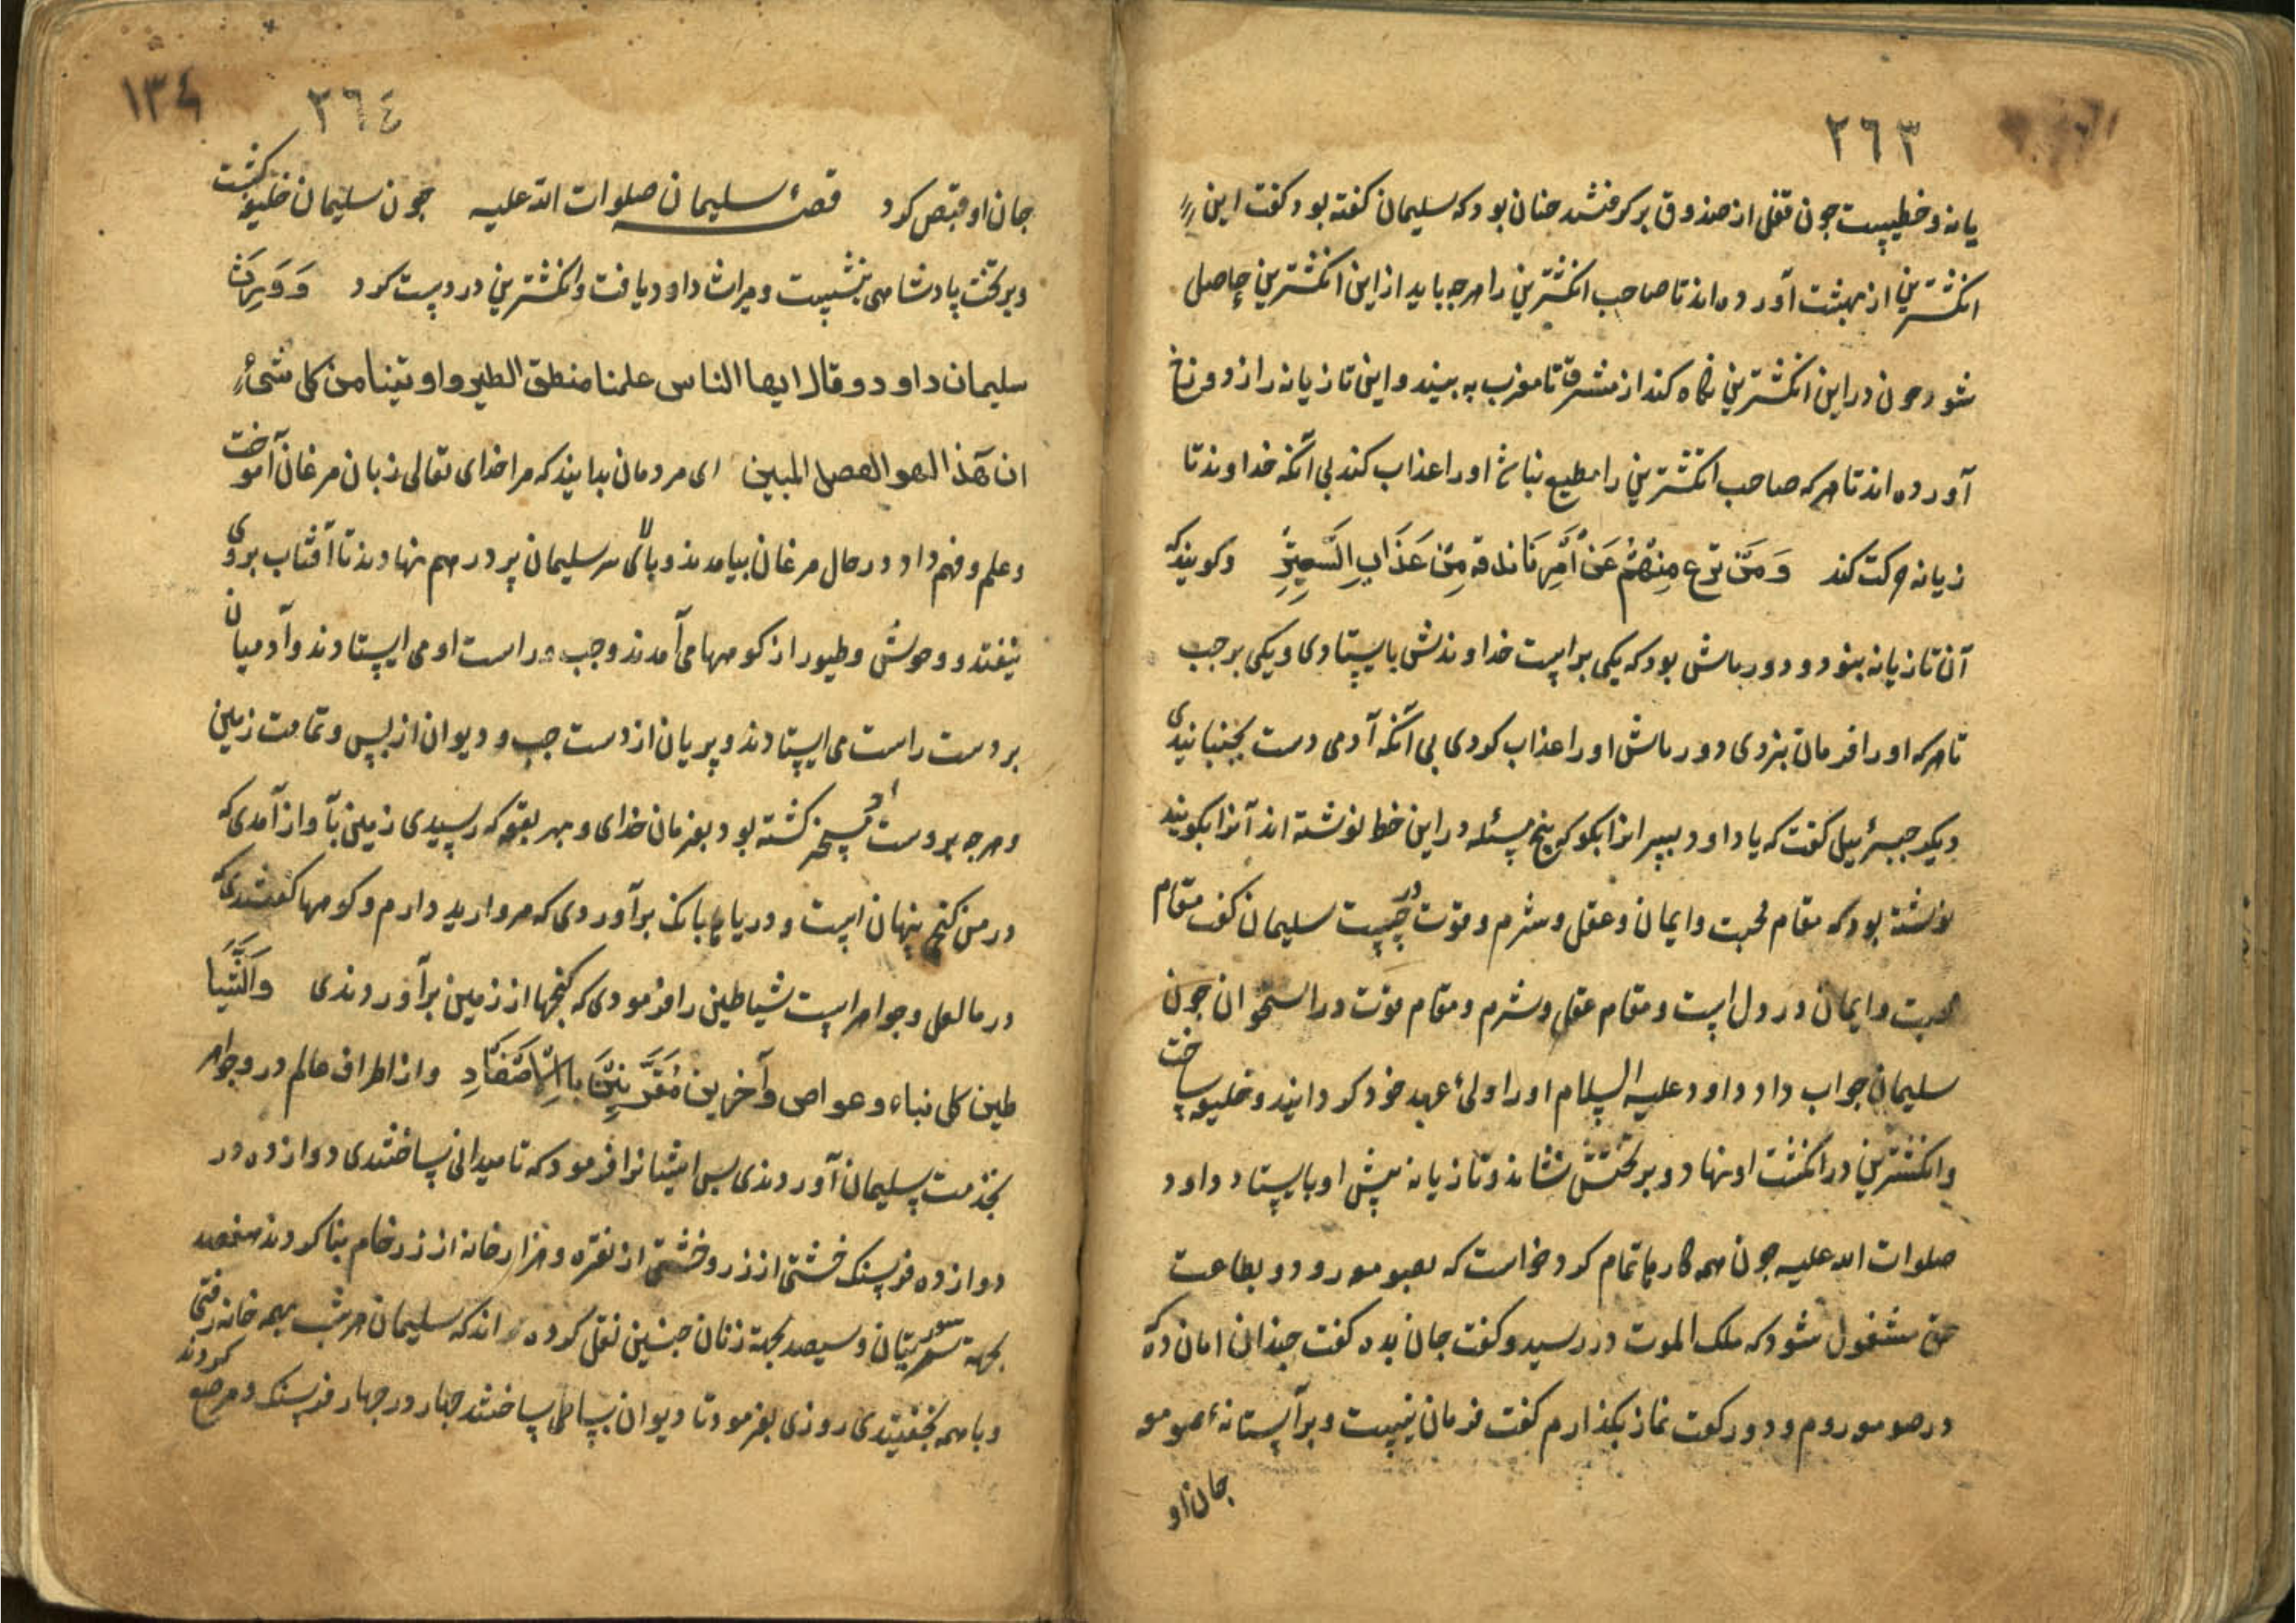 ٢٦٣
یانه و خطیست جون قفل از صندوق بر کرفتند جنان بود که سلیمان کفته بود کفت این
انکشترین از بهشت آورده اند تا صاحب انکشترین را هرجه باید از این انکشترین حاصل
شود جون در این انکشترین نکاه کند از مشرق تا مغرب به بیند و این تازیانه را از دوزخ
آورده اند تا هرکه صاحب انکشترین را مطیع نباشد او را عذاب کند بی آنکه خداوند تا
زیانه حرکت کند وَمَنْ یزع مِنْهُمْ عَنْ أَمْرِنَا نذقه مِنْ عَذَابِ السَّعِیرِ و کویند که
آن تازیانه بنود دو دورباش بود که یکی براست خداوندش بایستادی و یکی بر جب
تا هرکه او را فرمان نبردی دورباش او را عذاب کردی بی آنکه آدمی دست بجنبانیدی
دیکر جبرئیل کفت که یا داود بسپرانرا بکو که پنج مسئله در این خط نوشته اند آنرا بکویند
نوشته بود که مقام محبت و ایمان و عقل و شرم و قوت در جیست سلیمان کفت مقام
محبت و ایمان در دل است و مقام عقل و شرم و مقام قوت در استخوان جون
سلیمان جواب داد داود علیه السلام او را ولیٔ عهد خود کردانید و خلیفه ساخت
و انکشترین در انکشت او نهاد و بر تختش نشاند و تازیانه پیش او بایستاد داود
صلوات الله علیه جون همه کارها تمام کرد خواست که بصومعه رود و بطاعت
حق مشغول شود که ملک الموت در رسید و کفت جان بده کفت جندان امان ده که
در صومعه روم و دو رکعت نماز بکذارم کفت فرمان نیست و بر آستانهٔ صومعه
جان او
١٣٤
٢٦٤
جان او قبض کرد قصهٔ سلیمان صلوات الله علیه جون سلیمان خلیفه کشت
و بر تخت پادشاهی بنشست و میراث داود یافت و انکشترین در دست کرد وَوَرِثَ
سلیمان داود و قال ایها الناس علمنا منطق الطیر و اوتینا من کل شیٔ
ان هذا لهو الفضل المبین ای مردمان بدانید که مرا خدای تعالی زبان مرغان آموخت
و علم و فهم داد در حال مرغان بیامدند و بالای سر سلیمان پر در هم نهادند تا آفتاب بروی
نیفتد و وحوش و طیور از کوهها می آمدند و جب و راست او می ایستادند و آدمیان
بر دست راست می ایستادند و پریان از دست جب و دیوان از پس و تمامت زمین
و هرجه بروست مسخر او کشته بود بفرمان خدای و بهر بقعه که رسیدی زمین بآواز آمدی که
در من کنج پنهان است و دریاها بانک برآوردی که مروارید دارم و کوهها کفتندی که
در ما لعل و جواهر است شیاطین را فرمودی که کنجها از زمین برآوردندی وَالشَّیَا
طین کل بناء و غواص وآخرین مُقَرَّنِینَ بِالْاَصْفَادِ و از اطراف عالم در و جواهر
بخدمت سلیمان آوردندی پس ایشانرا فرمود که تا میدانی ساختندی دوازده در
دوازده فرسنک خشتی از زر و خشتی از نقره و هزار خانه از زر خام بنا کردند هفصد
بجهة سریتان و سیصد بجهة زنان جنین نقل کرده اند که سلیمان هر شب بهمه خانه رفتی
و با همه بخفتیدی روزی بفرمود تا دیوان بساطی ساختند جهار در جهار فرسنک و مرصع کردند